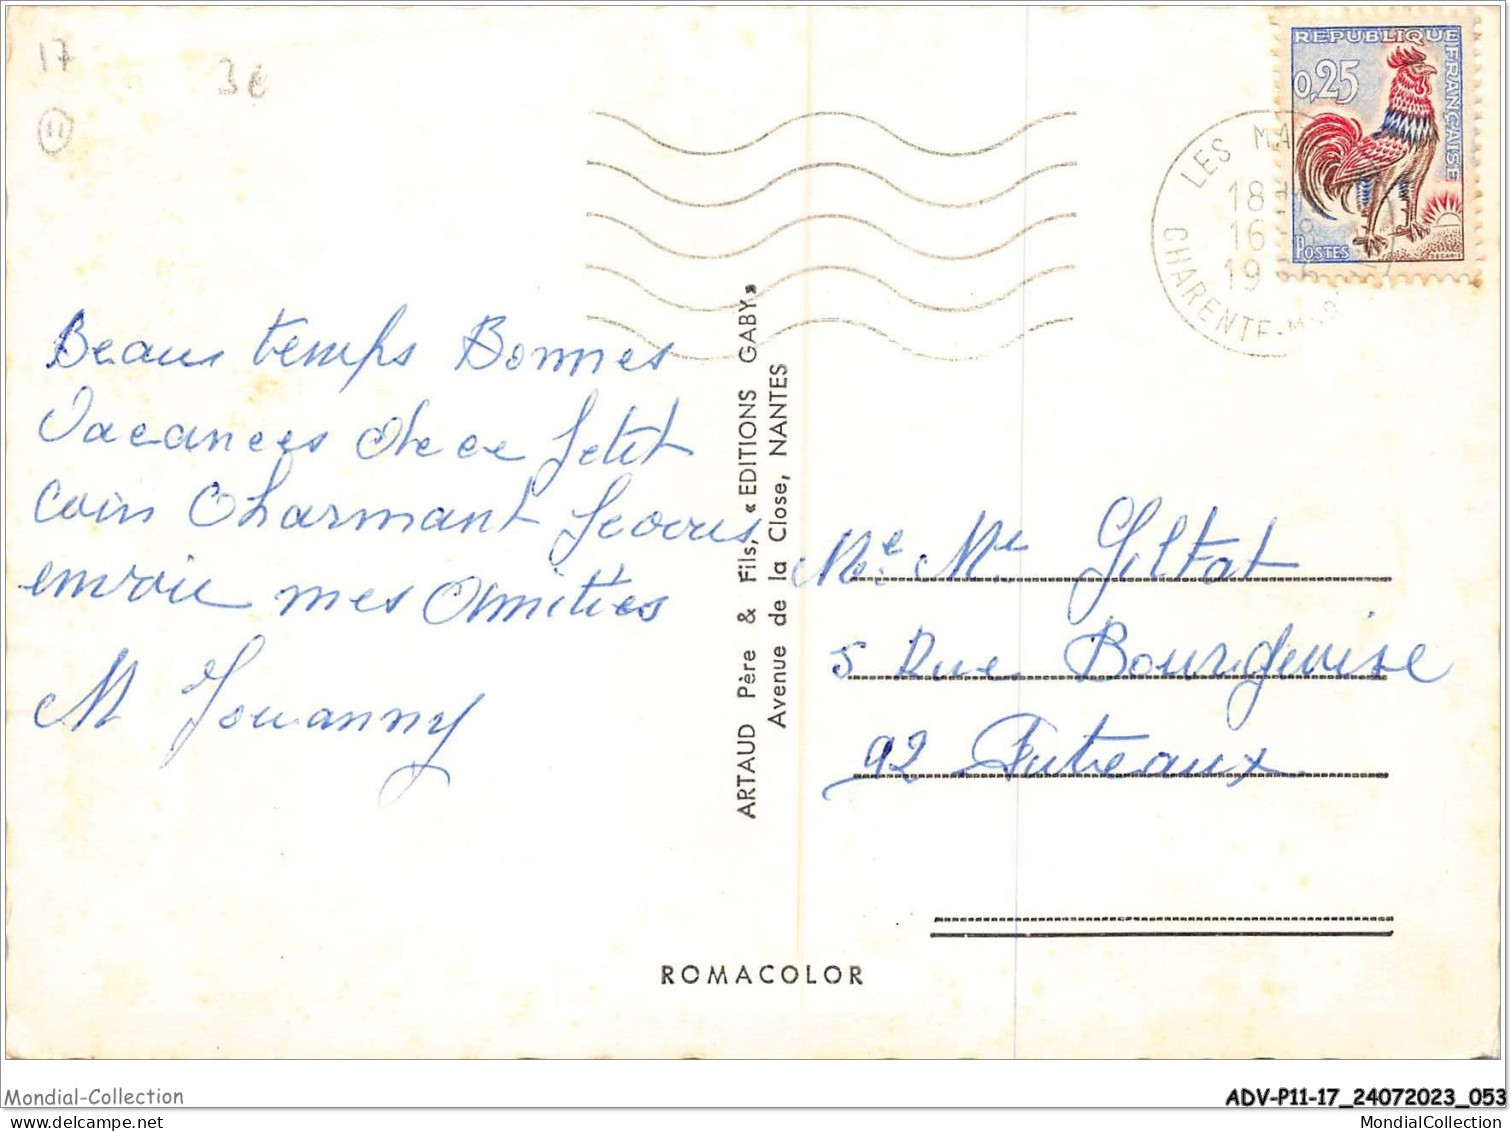 17
3€
11
REPUBLIQUE FRANÇAISE
0,25
POSTES
DECARIS
LES MA
18H
16 8
19
CHARENTE-M
Beau temps Bonnes
Vacances de ce petit
coin Charmant Je vous
envoie mes Amitiés
M Jouanny
ARTAUD Père & Fils, « EDITIONS GABY»
Avenue de la Close, NANTES
Me. Mr Giltat
5 Rue Bourgeoise
92 Puteaux
ROMACOLOR
Mondial-Collection
ADV-P11-17_24072023_053
www.mondialcollection.net
MondialCollection.com